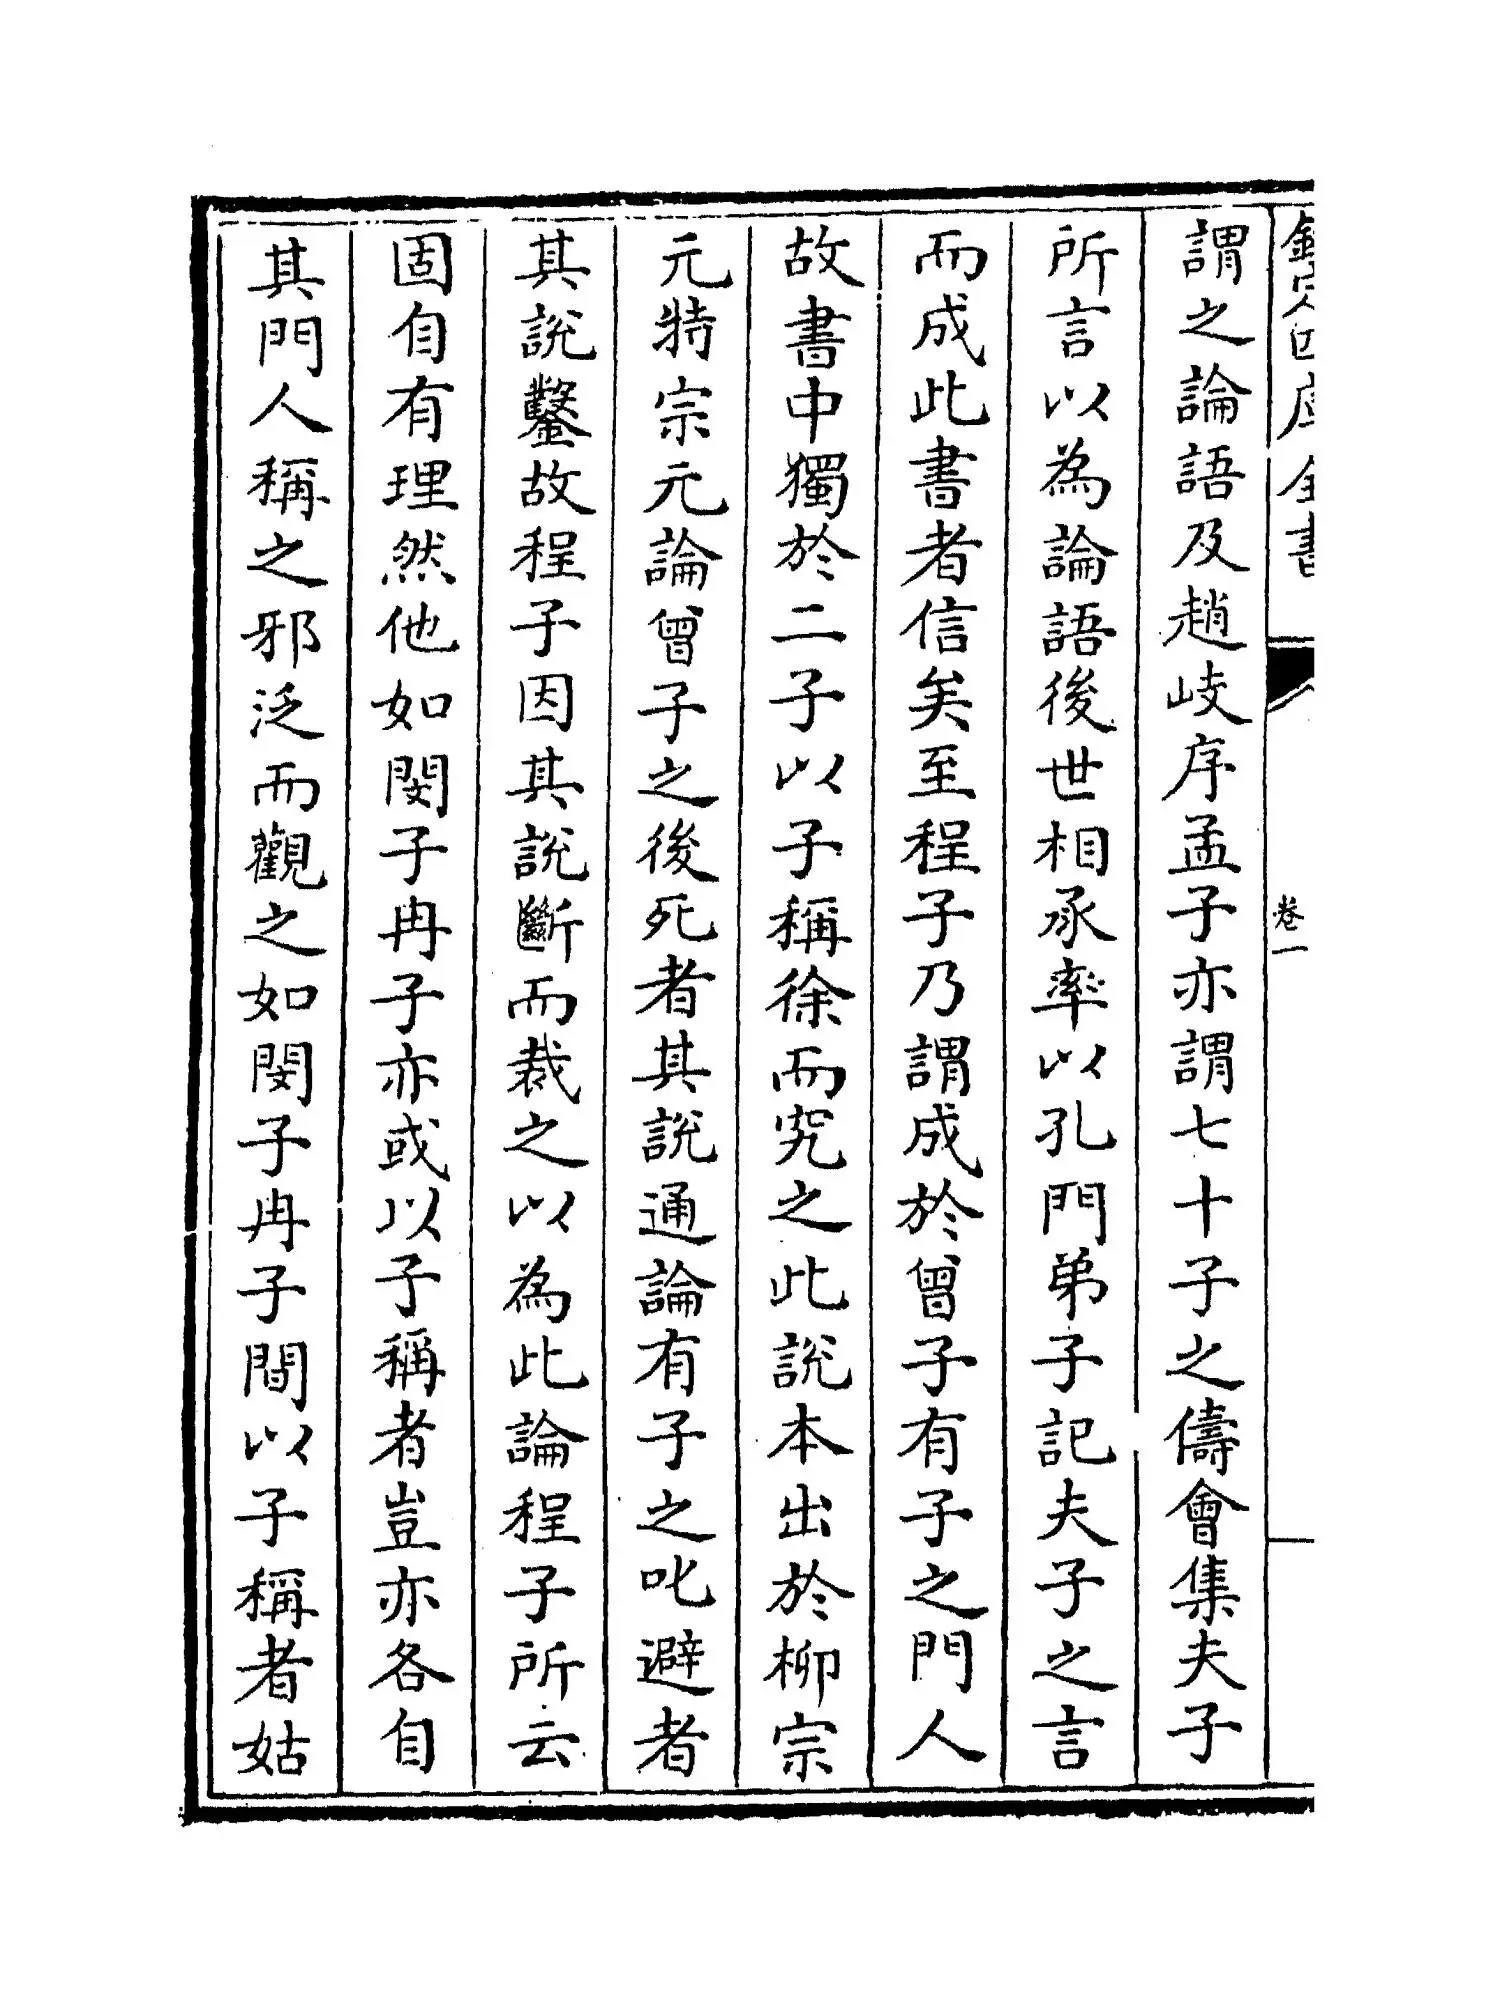 欽定四庫全書
卷一
謂之論語及趙岐序孟子亦謂七十子之儔會集夫子
所言以為論語後世相承率以孔門弟子記夫子之言
而成此書者信矣至程子乃謂成於曾子有子之門人
故書中獨於二子以子稱徐而究之此説本出於柳宗
元特宗元論曾子之後死者其説通論有子之叱避者
其説鑿故程子因其説斷而裁之以為此論程子所云
固自有理然他如閔子冉子亦或以子稱者豈亦各自
其門人稱之邪泛而觀之如閔子冉子間以子稱者姑